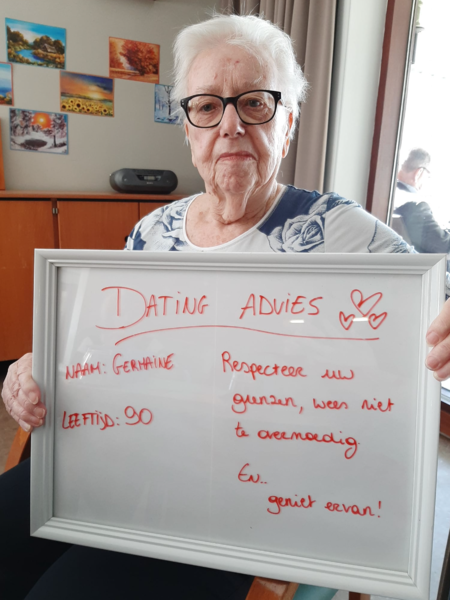 DATING ADVIES
NAAM: GERMAINE
LEEFTIJD: 90
Respecteer uw
grenzen, wees niet
te overmoedig.
En..
geniet ervan!